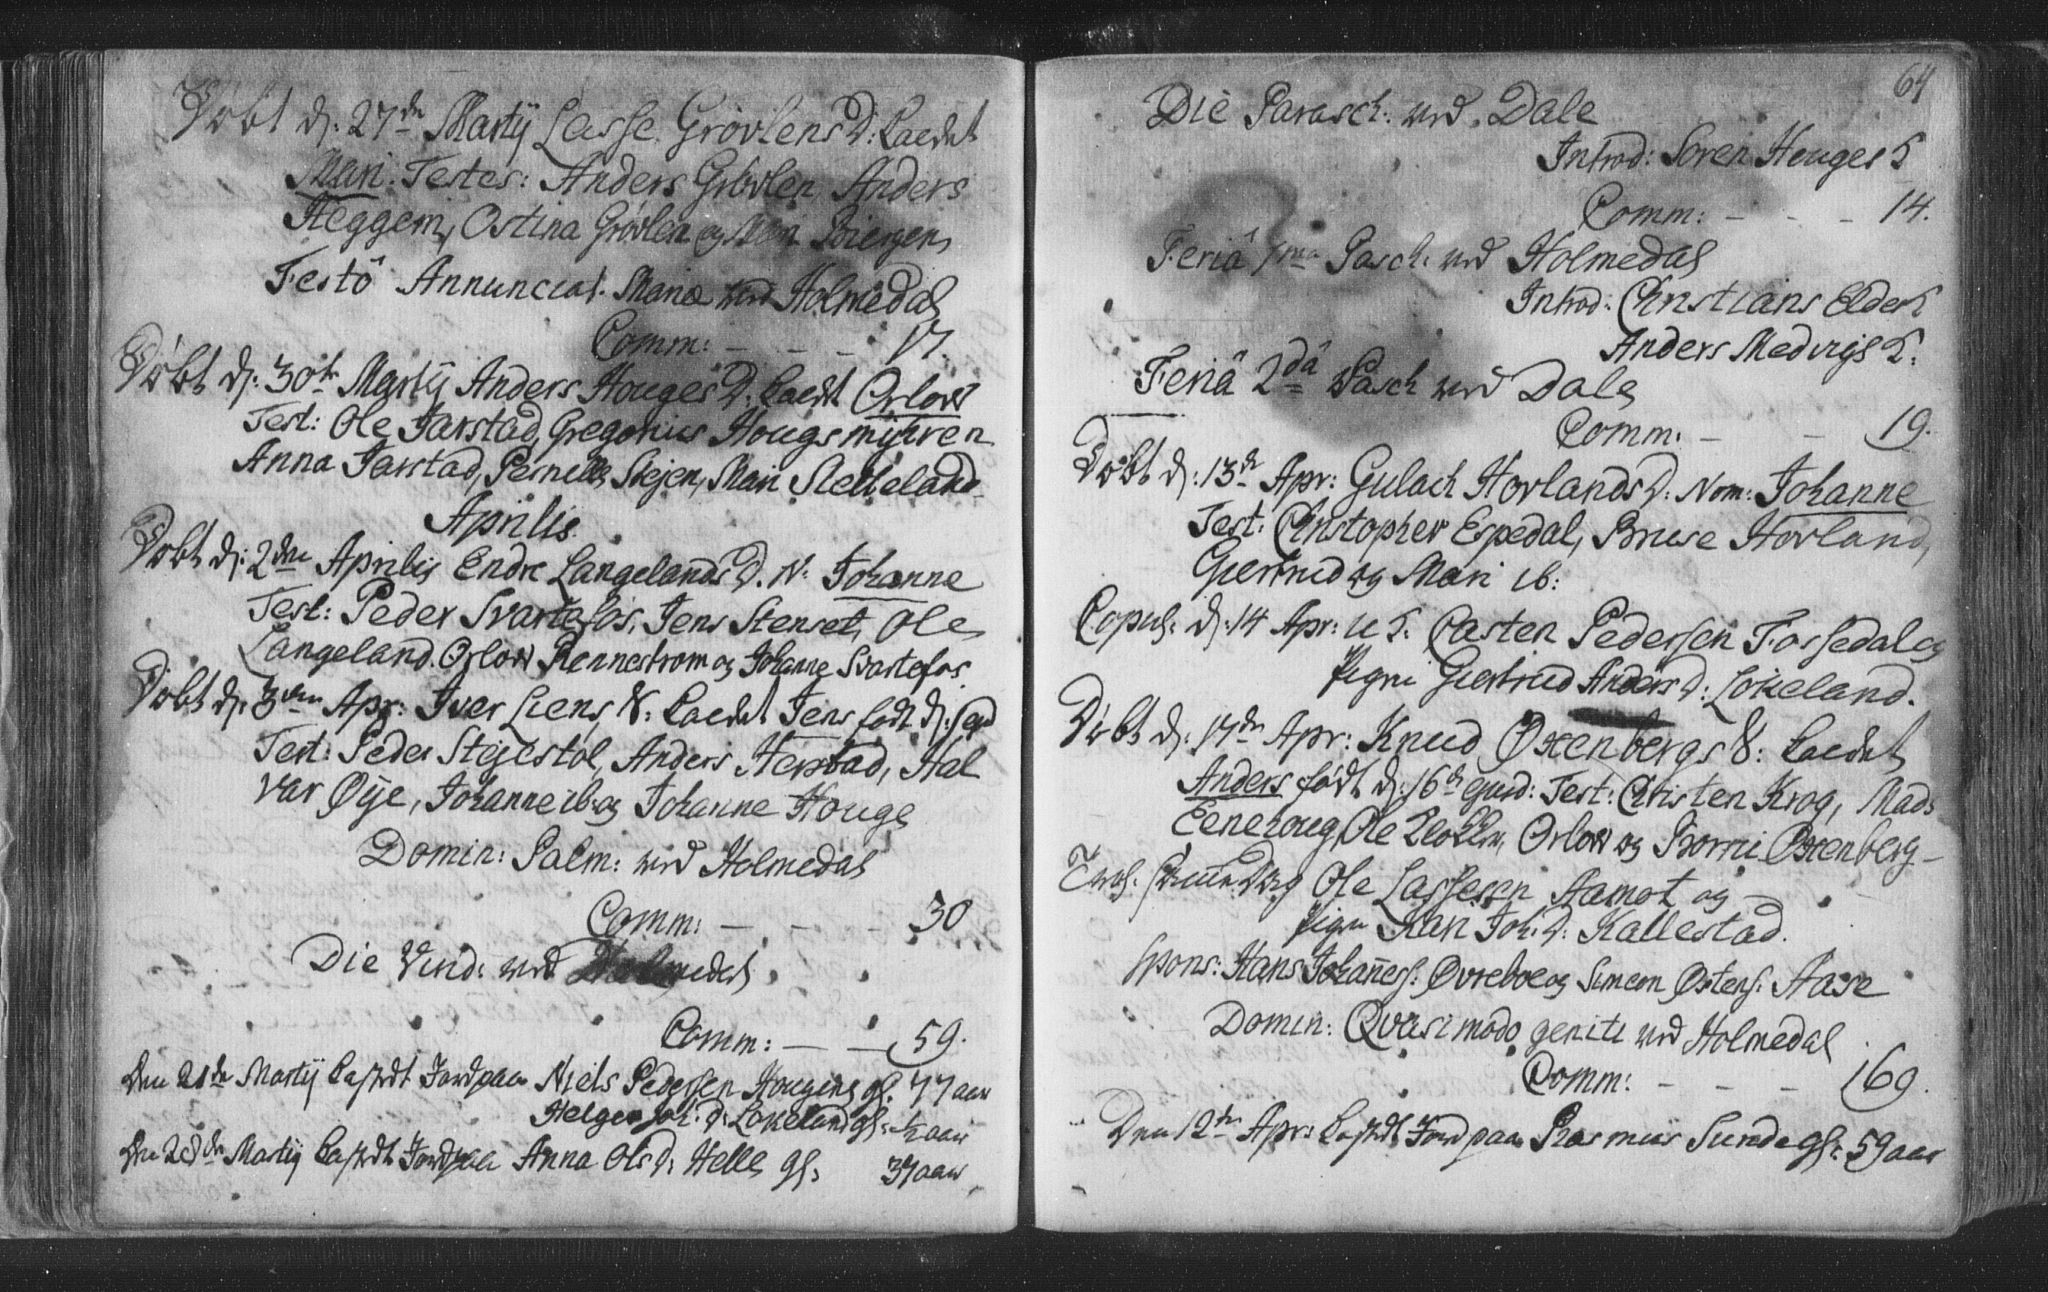 Døbt d: 27de Martij Lasse Grøvlens D: kaldet
Mari. Testes: Anders Grøvlen, Anders
Heggem, Ostina Grøvlen og Mari Bierge,
Festô Annunciat. Mariæ ved Holmedal
Comm: - - - 17.
Døbt d: 30te Martij Anders Houges D: kaldt Orlow
Test: Ole Jarstad, Gregorius Hougsmyhren
Anna Jarstad, Pernelle Stejen, Mari Sletteland
Aprilis.
Døbt d: 2den Aprilis Endre Langelands D. N: Johanne
Test: Peder Svartefos, Jens Stenset, Ole
Langeland. Orlow Rennestrom og Johanne Svartefos
Døbt d: 3den Apr: Iver Liens S: kaldet Jens født d:
Test: Peder Stejestøl, Anders Herstad, Hal
var Øije, Johanne ib: og Johanne Houge
Domin: Palm: ved Holmedal
Comm: - - - 30
Die Virid: ved Holmedal
Comm: - - 59.
Den 21de Martij kastedt Jord paa Niels Pedersen Hougens gl. 77 aar
Helge Joh. D: Lokeland gl: 1/2 aar
Den 28de Martij kastedt Jord paa Anna Ols D: Helle gl: 37 aar
64
Die Parasch: ved Dale
Introd: Søren Houges K
Comm: - - - 14.
Feriâ 1ma Pasch: ved Holmedal
Introd: Christians Elde K
Anders Medvigs K.
Feriâ 2dâ Pasch ved Dale
Comm: - - 19.
Døbt d: 13de Apr: Gulach Hovlands D: Nom: Johanne
Test: Christopher Espedal, Bruse Hovland,
Giertrud og Mari ib:
Copul: d: 14 Apr: U K: Casten Pedersen Fossedal og
Pigen Giertrud Anders D: Lokeland.
Døbt d: 17de Apr: Knud Oxenbergs S: kaldet
Anders født d: 16de Test: Christen Krog, Mads
Eenehoug, Ole Klokker, Orlow og Borni Oxenberg
Trol. Ole Lassesen Aamot og
Pigen Kari Joh. D: Kallestad.
Spons: Hans Johannes: Øvrebøe og Simeon Østens: Aase
Domin: Qvasimodo geniti ved Holmedal
Comm: - - - 169.
Den 12te Apr: kastedt Jord paa Rasmus Sunde gl: 59 aar